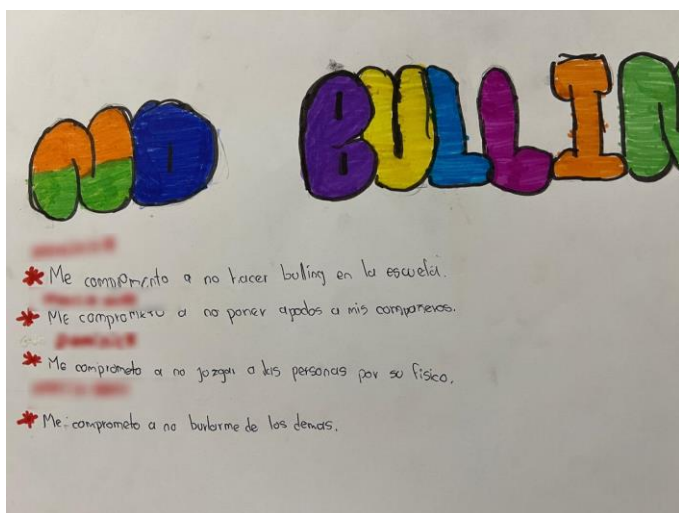 NO BULLIN
* Me comprometo a no hacer bulling en la escuela.
* Me comprometo a no poner apodos a mis compañeros.
* Me comprometo a no juzgar a las personas por su físico.
* Me comprometo a no burlarme de los demas.